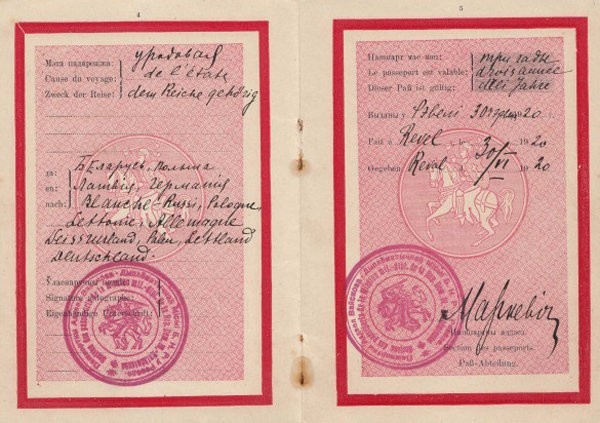 4
Мэта падарожжа:
Cause du voyage:
Zweck der Reise:
урадовая
de l'état
dem Reiche gehörig
да:
en:
nach:
Беларусь, Польша
Латвія, Германія
Blanche-Russi, Pologne,
Lettonie, Allemagne
Weissrutland, Polen, Lettland
Deutschland.
Signature autographe:
Eigenhändige Unterschrift:
5
Пашпарт мае моц:
Le passeport est valable:
Dieser Paß ist gültig:
тры гады
drei Jahre
Выданы у Рэвелі 30 1920
Fait à Revel, le 30 1920
Gegeben Reval, 30/VI 1920
Маркевіч
Section des passeports.
Paß-Abteilung.